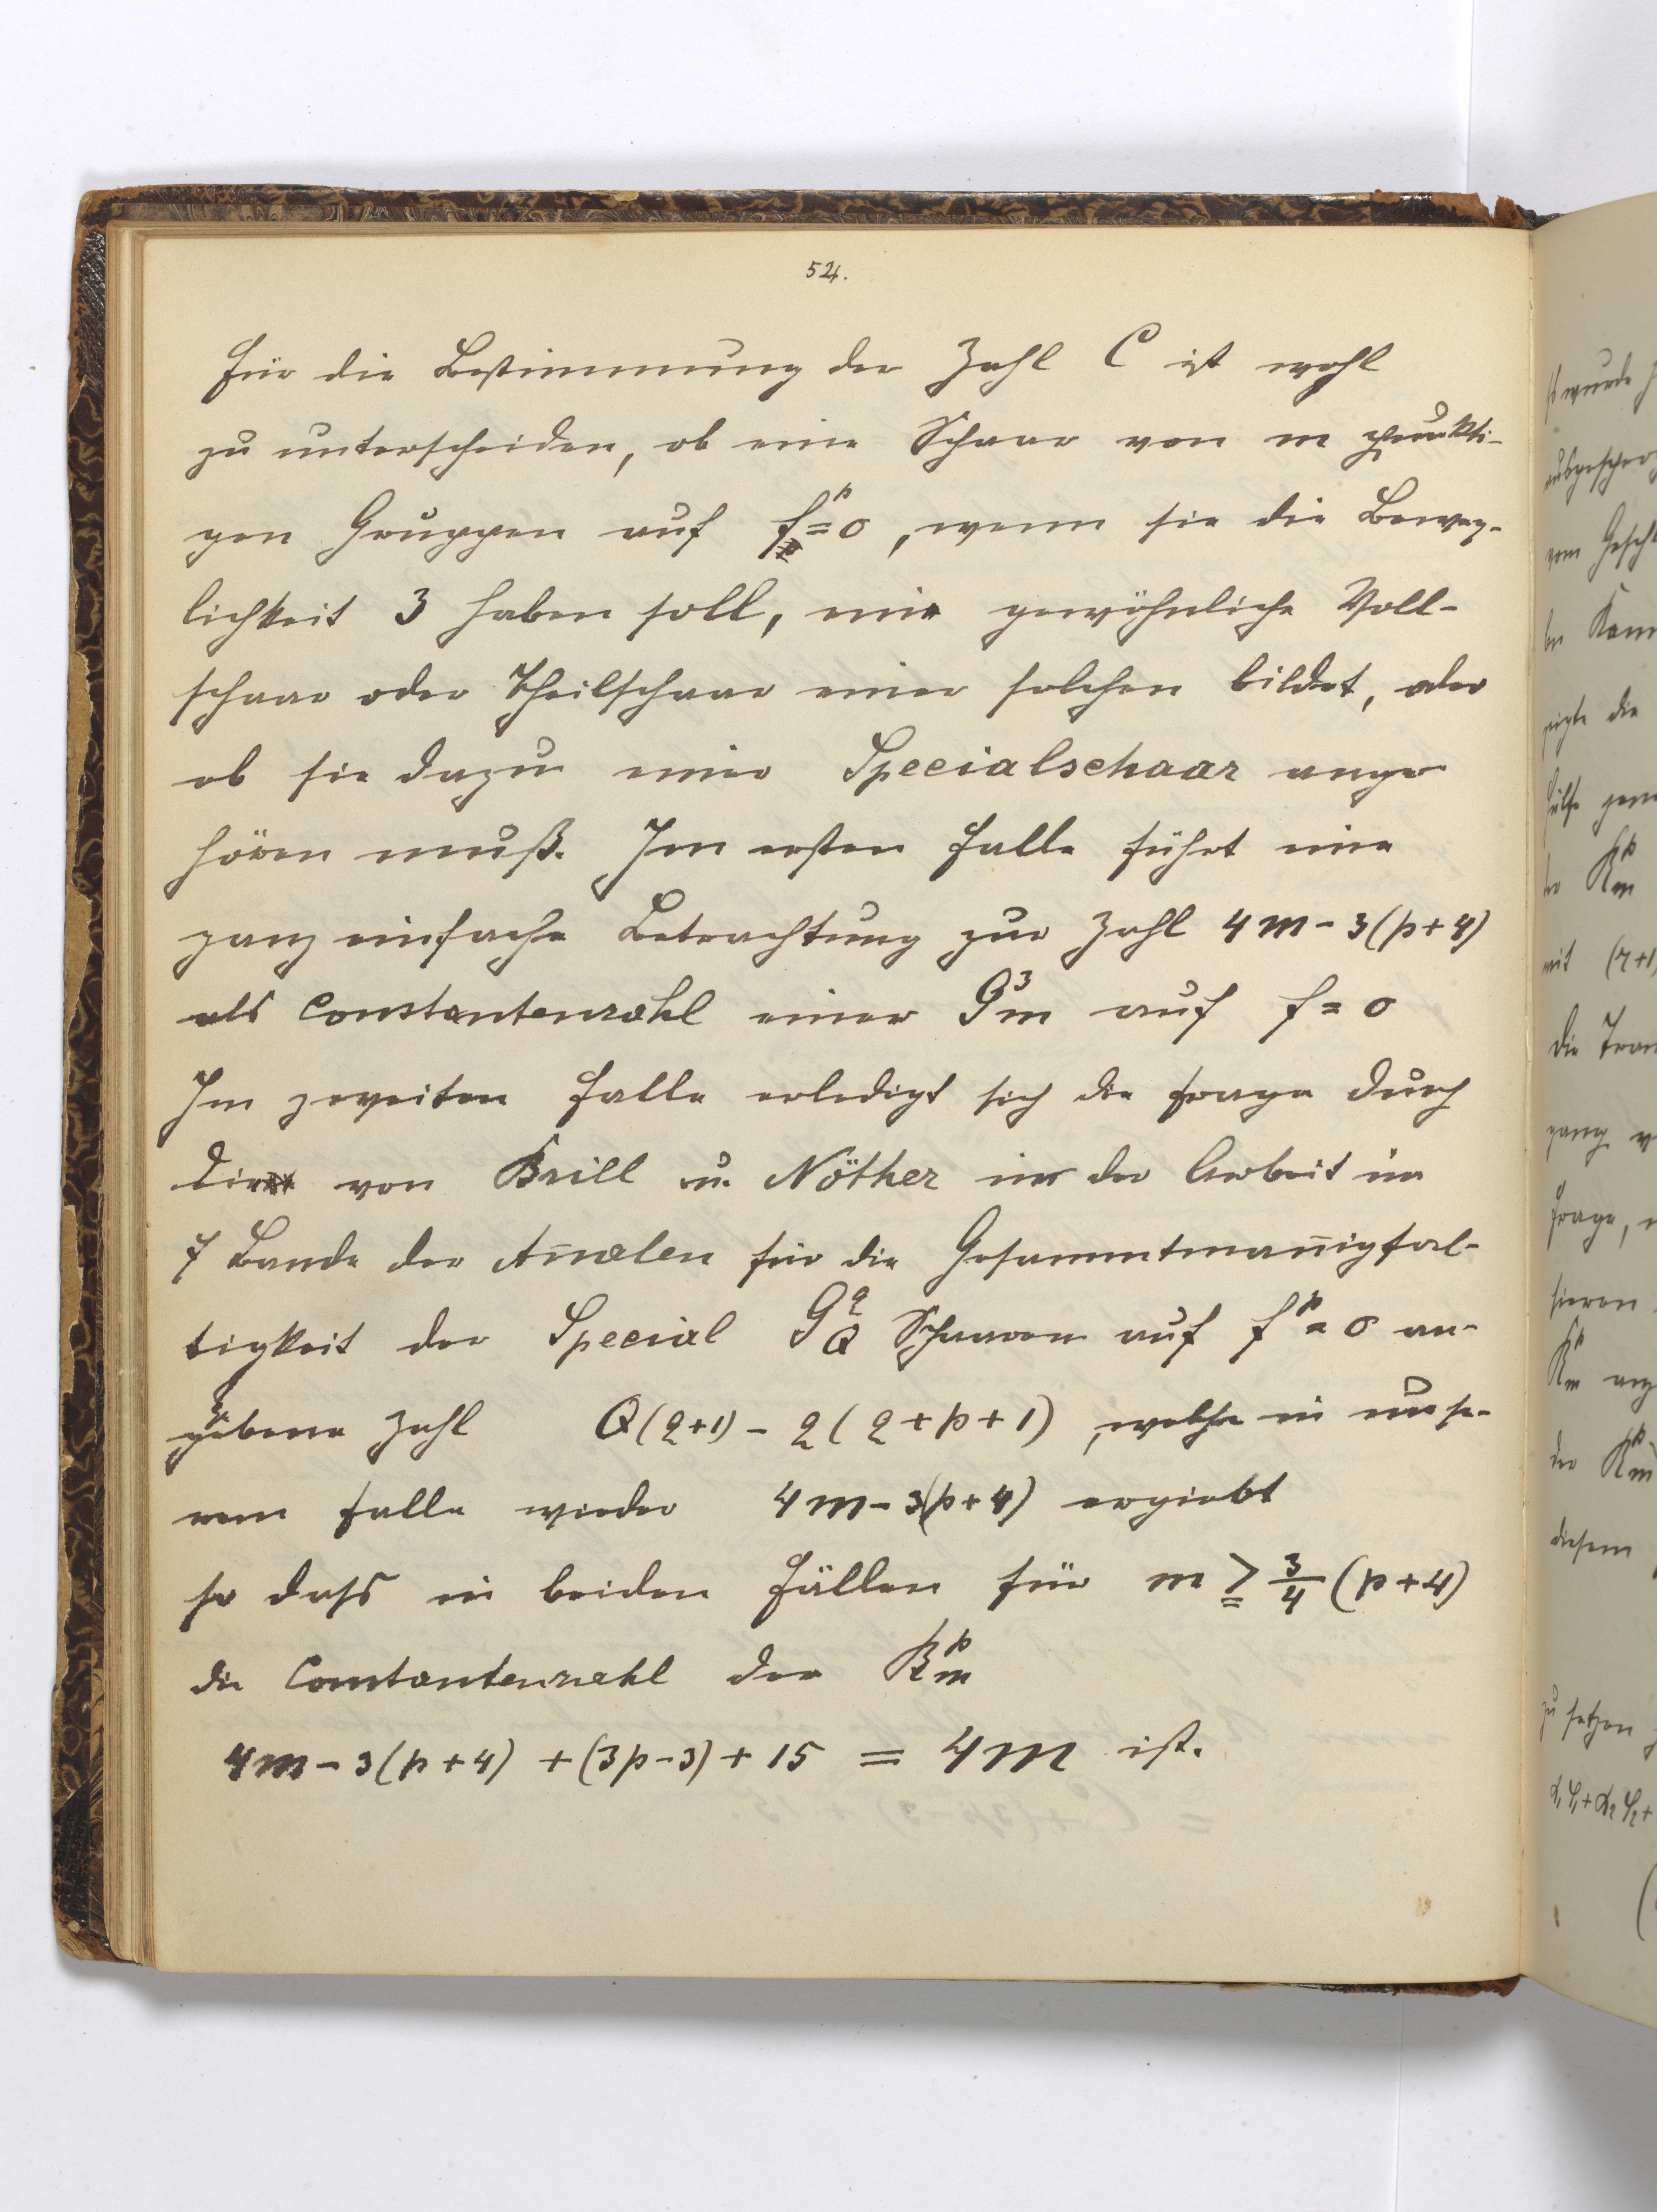 54.
Für die Bestimmung der Zahl C ist wohl
zu unterscheiden, ob eine Schaar von m punkti-
gen Gruppen auf f^p=0, wenn sie die Beweg-
lichkeit 3 haben soll, eine gewöhnliche Voll-
schaar oder Theilschaar einer solchen bildet, oder
ob sie dazu einer Specialschaar ange
hören muß. Im ersten Falle führt eine
ganz einfache Betrachtung zur Zahl 4m-3(p+4)
als Constantenzahl einer G^3_m auf f=0
Im zweiten Falle erledigt sich die Frage durch
die von Brill u. Nöther in der Arbeit im
7 Bande der An̄alen für die Gesammtman̄igfal-
tigkeit der Special G^q_Q Schaaren auf f^p=0 an-
gebene Zahl Q(q+1)-q(q+p+1), welche in unse-
rem Falle wieder 4m-3(p+4) ergiebt
so dass in beiden Fällen für m ≧ 3/4 (p+4)
die Constantenzahl der R^p_m
4m-3(p+4)+(3p-3)+15 = 4m ist.
wurde
vom
Kom
die
R^p_m
mit (r+1)
die
Frage,
R^p_m
der R^p_m
diesem
zu setzen
α₁φ₁+α₂φ₂+